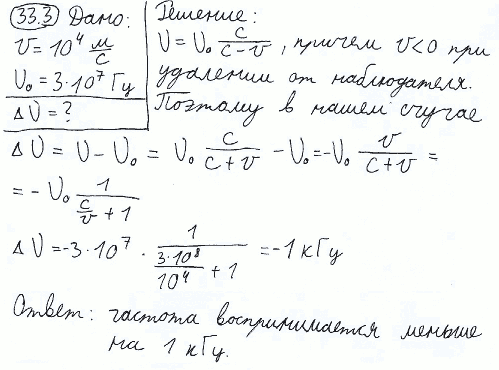 33.3 Дано:
v = 10⁴ м/с
υ₀ = 3·10⁷ Гц
Δυ = ?
Решение:
υ = υ₀ c/(c-v), причем v<0 при
удалении от наблюдателя.
Поэтому в нашем случае
Δυ = υ - υ₀ = υ₀ c/(c+v) - υ₀ = -υ₀ v/(c+v) =
= -υ₀ 1/(c/v + 1)
Δυ = -3·10⁷ · 1/(3·10⁸/10⁴ + 1) = -1 кГц
Ответ: частота воспринимается меньше
на 1 кГц.